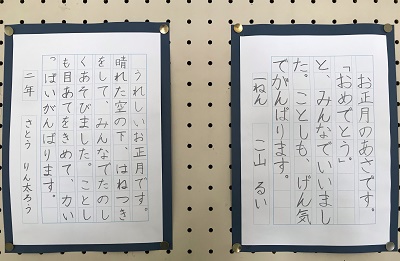 お正月のあさです。
「おめでとう」
と、みんなでいいまし
た。ことしも、げん気
でがんばります。
一ねん こ山 るい
うれしいお正月です。
晴れた空の下、はねつき
をして、みんなでたのし
くあそびました。ことし
も目あてをきめて、力い
っぱいがんばります。
二年 さとう りん太ろう